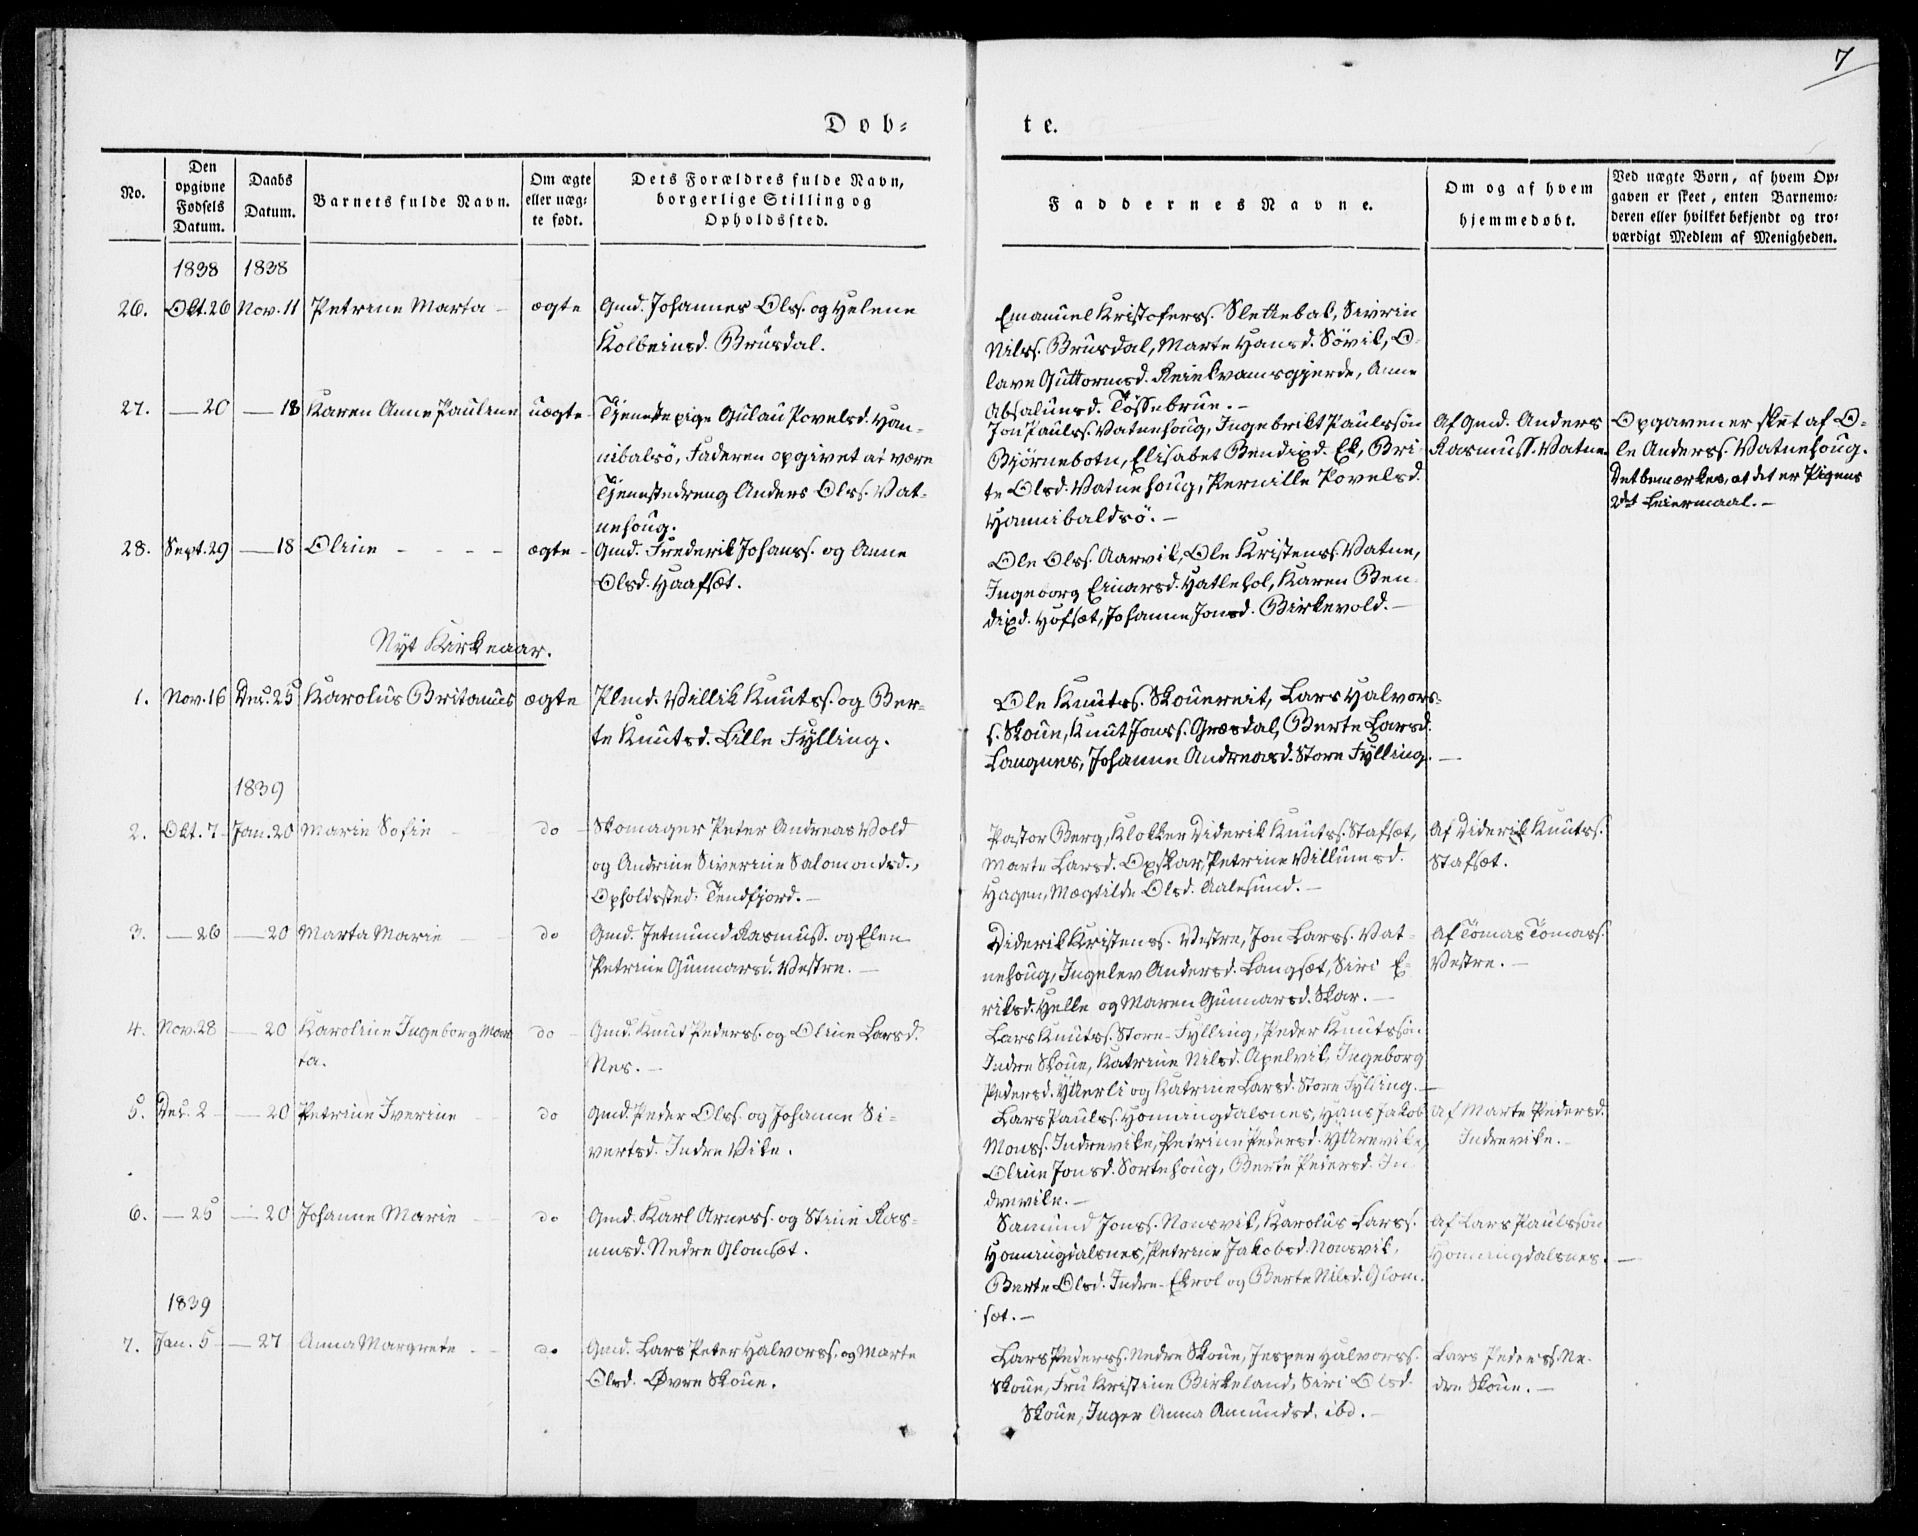 7
Døb-
te.
No.
Den opgivne Fødsels Datum.
Daabs Datum.
Barnets fulde Navn.
Om ægte eller uæg- te født.
Dets Forældres fulde Navn, borgerlige Stilling og Opholdssted.
Faddernes Navne.
Om og af hvem hjemmedøbt.
Ved uægte Børn, af hvem Op- gaven er skeet, enten Barnemo- deren eller hvilket bekjendt og tro- værdigt Medlem af Menigheden.
1838 1838
26. Okt. 26 Nov. 11 Petrine Marta - ægte Gmd. Johannes Olss. og Helene
Kolbeinsd. Brusdal.
Emanuel Kristoferss. Slettebak, Sivrin
Nilss. Brusdal, Marte Hansd. Søvik, O-
lave Guttormsd. Reiekvamsgjerde, Anne
Absalunsd. Tøssebrue. -
27. - 20 - 18 Karen Anne Pauline uægte Tjenestepige Gulau Povelsd. Han-
nibalsø, Faderen opgivet at være
Tjenestedreng Anders Olss. Vat-
nehoug.
Jon Paulss. Vatnehoug, Ingebrikt Paulssøn
Bjørnebotn, Elisabet Bendixd. Ek, Bri-
te Olsd. Vatnehoug, Pernille Povelsd.
Hannibaldsø. -
Af Gmd. Anders
Rasmuss. Vatne.
Opgaven er skeet af O-
le Anderss. Vatnehoug.
Det bemærkes, at det er Pigens
2det Leiermaal. -
28. Sept. 29 - 18 Oline - - - - ægte - Gmd. Frederik Johanss. og Anne
Olsd. Haafsæt.
Ole Olss. Aarvik, Ole Kristenss. Vatne,
Ingeborg Einarsd. Hatlehol, Karen Ben-
dixd. Hofsæt, Johanne Jonsd. Birkevold. -
Nyt Kirkeaar.
1. Nov. 16 Dec. 25 Karolus Britanus ægte Plmd. Villik Knutss. og Ber-
te Knutsd. Lille Fylling.
Ole Knutss. Skouereit, Lars Halvors-
s. Skoue, Knut Jonss. Græsdal, Berte Larsd.
Langnes, Johanne Andreasd. Store Fylling. -
1839
2. Okt. 7 - Jan. 20 Marie Sofie - do - Skomager Peter Andreas Vold
og Andrine Siverine Salomondsd.,
Opholdssted: Tendfjord. -
Pastor Berg, Klokker Diderik Knutss. Stafsæt,
Marte Larsd. Opskar, Petrine Villumsd.
Hagen, Mægtilde Olsd. Aalesund. -
Af Diderik Knutss.
Stafsæt.
3. - 26 - 20 Marta Marie - do Gmd. Jetmund Rasmuss. og Elen
Petrine Gunnarsd. Vestre. -
Diderik Kristens. Vestre, Jon Larss. Vat-
nehoug, Ingelev Andersd. Langsæt, Siri E-
riksd. Helle og Maren Gunnarsd. Skar. -
Af Tomas Tomass.
Vestre. -
4. Nov. 28 - 20 Karoline Ingeborg Mar- do - Gmd. Knut Pederss. og Oline Larsd.
ta.
Nes. -
Lars Knutss. Store-Fylling, Peder Knutssøn
Indre Skoue, Katrine Nilsd. Apelvik, Ingeborg
Pedersd. Ytterli og Katrine Larsd. Store Fylling. -
5. Dec. 2 - - 20 Petrine Iverine - do Gmd. Peder Olss. og Johanne Si-
vertsd. Indre Vike.
Lars Paulss. Honningdalsnes, Hans Jakob
Monss. Indrevike, Petrine Pedersd. Yttrevike,
Oline Jonsd. Sortehoug, Berte Pedersd. In-
drevike. -
Af Marte Pedersd.
Indrevike. -
6. - 25 - 20 Johanne Marie - do Gmd. Karl Arness. og Stine Ras-
musd. Nedre Glomsæt.
Samund Jonss. Nonsvik, Karolus Larss.
Honningdalsnes, Petrine Jakobsd. Nonsvik,
Berte Olsd. Indre-Ekrol og Berte Nilsd. Glom-
sæt. -
Af Lars Paulssøn
Honningdalsnes. -
1839
7. Jan. 5 - 27 Anna Margrete - do Gmd. Lars Peter Halvorss. og Marte
Olsd. Øvre Skoue.
Lars Pederss. Nedre Skoue, Jesper Halvorss.
Skoue, Fru Kristine Birkeland, Siri Olsd.
Skoue, Inger Anna Amundsd. ibd. -
Lars Pederss. Ne-
dre Skoue. -